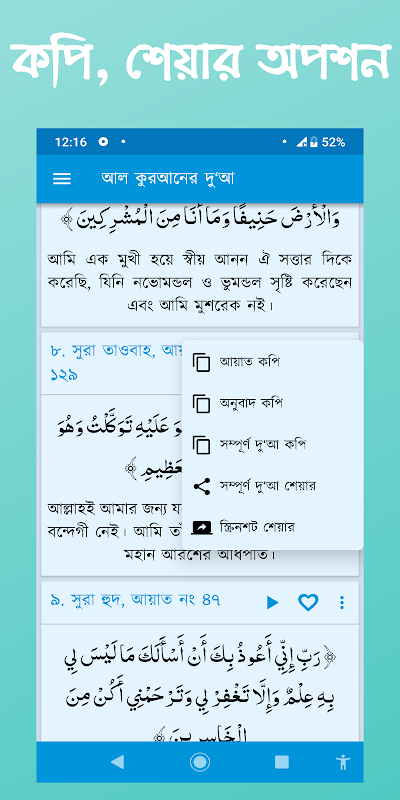 কপি, শেয়ার অপশন
12:16
52%
আল কুরআনের দু'আ
وَالْأَرْضَ حَنِيفًا وَمَا أَنَا مِنَ الْمُشْرِكِينَ ﴾
আমি এক মুখী হয়ে স্বীয় আনন ঐ সত্তার দিকে
করেছি, যিনি নভোমন্ডল ও ভুমন্ডল সৃষ্টি করেছেন
এবং আমি মুশরেক নই।
৮. সুরা তাওবাহ,
১২৯
আয়াত কপি
অনুবাদ কপি
সম্পূর্ণ দু'আ কপি
সম্পূর্ণ দু'আ শেয়ার
স্ক্রিনশট শেয়ার
عَلَيْهِ تَوَكَّلْتُ وَهُوَ
﴾
আল্লাহই আমার জন্য
বন্দেগী নেই। আমি
মহান আরশের অধিপতি।
৯. সুরা হুদ, আয়াত নং ৪৭
﴿ رَبِّ إِنِّي أَعُوذُ بِكَ أَنْ أَسْأَلَكَ مَا لَيْسَ لِي
بِهِ عِلْمٌ وَإِلَّا تَغْفِرْ لِي وَتَرْحَمْنِي أَكُنْ مِنَ
الْخَاسِرِينَ ﴾